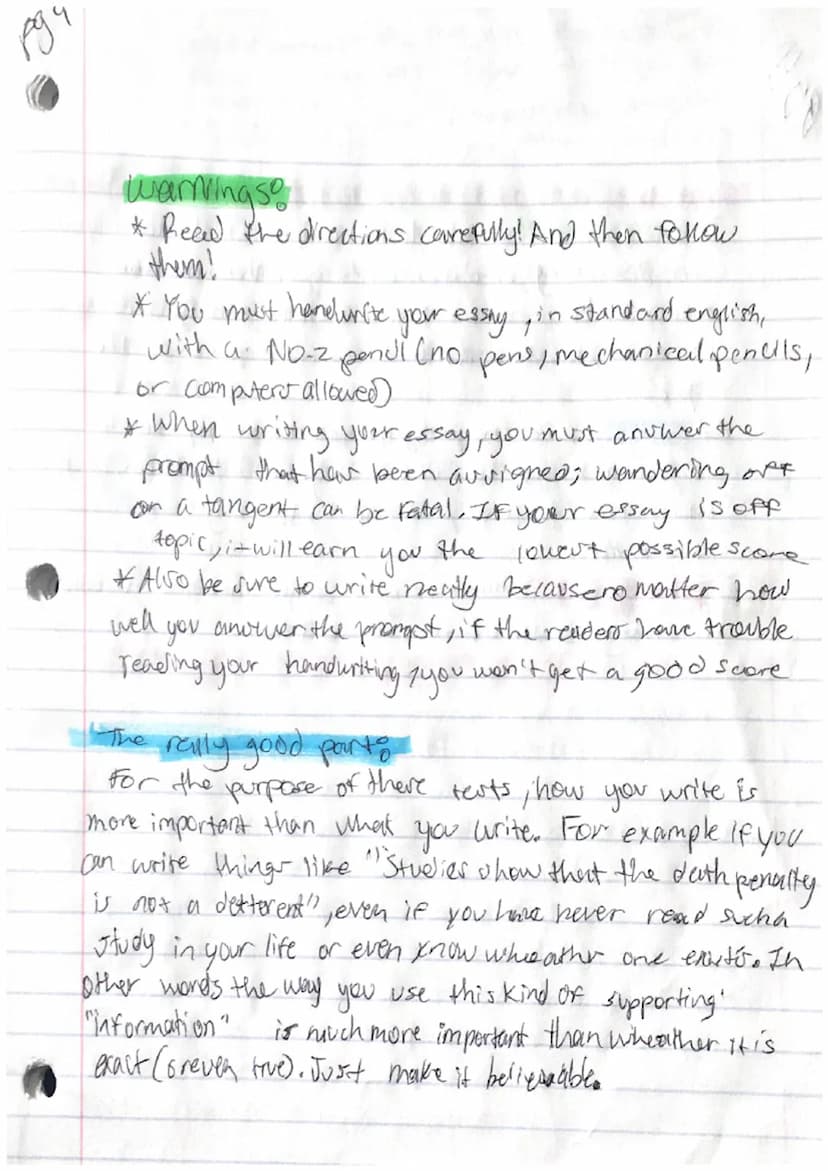 pg 4
Warnings:
* Read the directions carefully! And then follow
them!
* You must handwrite your essay, in standard english,
with a No-2 pencil (no pens, mechanical pencils,
or computers allowed)
* When writing your essay, you must answer the
prompt that has been assigned; wandering off
on a tangent can be fatal. If your essay is off
topic, it will earn you the lowest possible score
* Also be sure to write neatly because no matter how
well you answer the prompt, if the readers have trouble
reading your handwriting, you won't get a good score
The really good part:
For the purpose of these tests, how you write is
more important than what you write. For example if you
can write things like "Studies show that the death penalty
is not a detterent", even if you have never read such a
study in your life or even know wheather one exists. In
other words the way you use this kind of supporting
"information" is much more important than wheather it is
exact (or even true). Just make it believable.